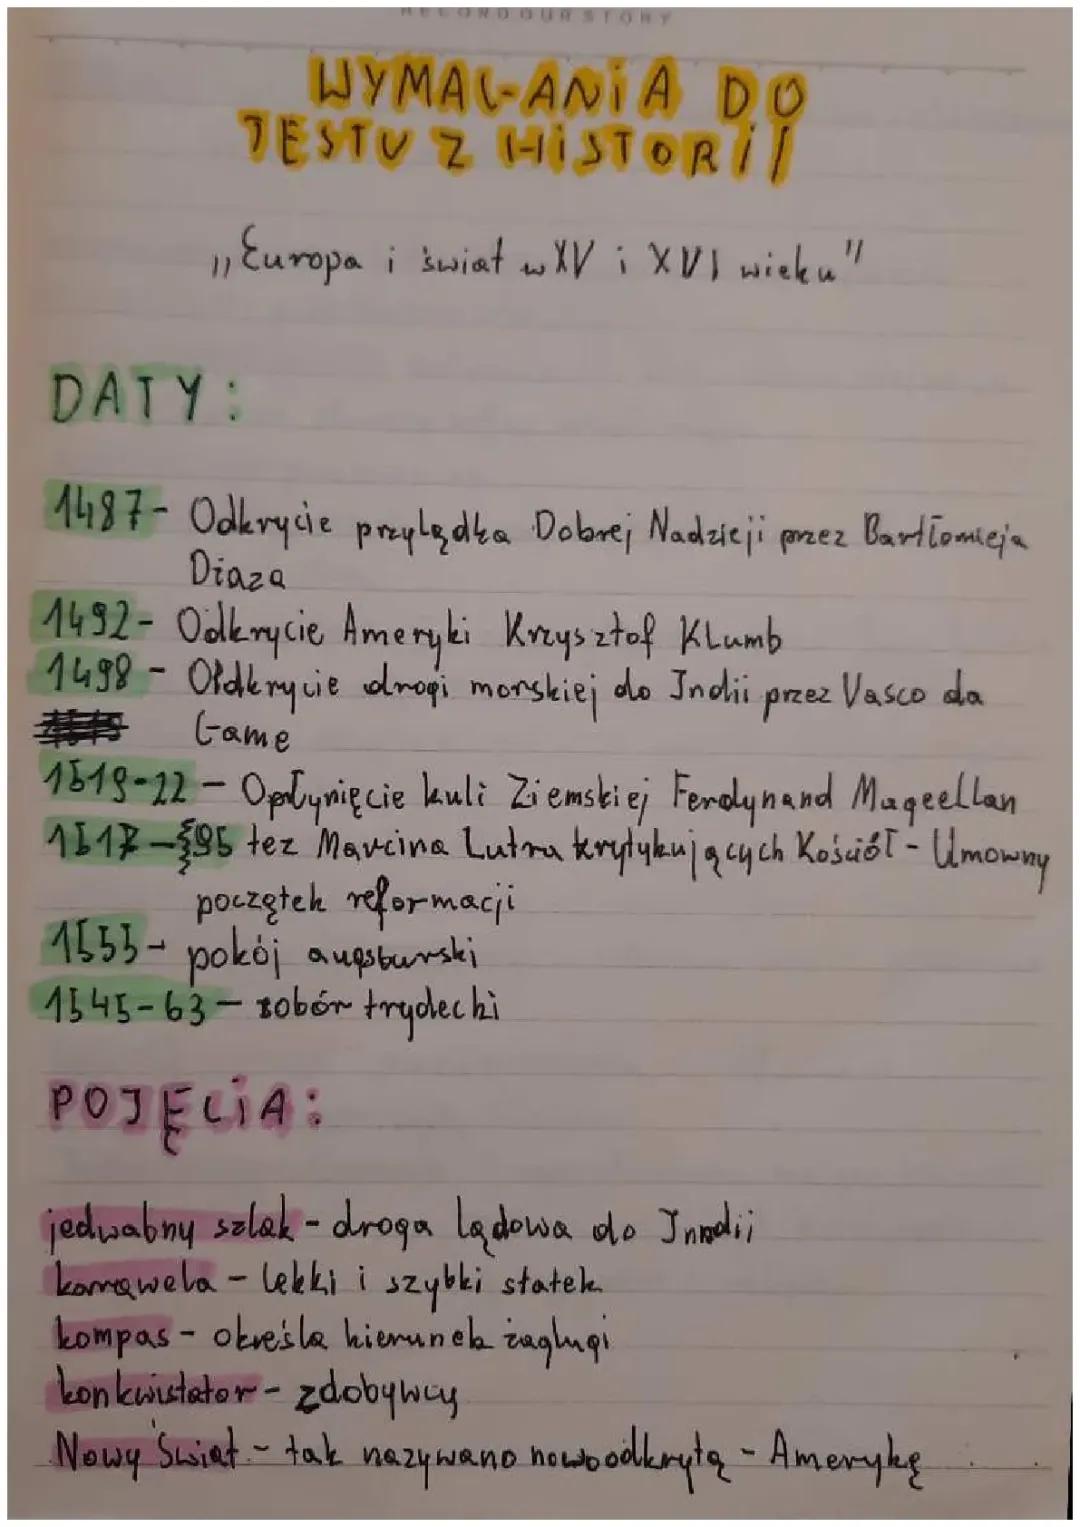 RECORD OUR STORY
WYMAGANIA DO
TESTU Z HiSTORii
„Europa i świat w XV i XVI wieku"
DATY:
1487- Odkrycie przylądka Dobrej Nadzieji przez Bartłomieja
Diaza
1492- Odkrycie Ameryki Krzysztof Klumb
1498 - Odkrycie drogi morskiej do Indii przez Vasco da
Game
1519-22 - Opłynięcie kuli Ziemskiej Ferdynand Mageellan
1517 - 95 tez Marcina Lutra krytykujących Kościół - Umowny
początek reformacji
1555- pokój augsburski
1545-63 - sobór trydecki
POJĘCiA:
jedwabny szlak - droga lądowa do Inndii
karawela - lekki i szybki statek
kompas - określa kierunek żaglugi
konkwistator - zdobywcy
Nowy Świat - tak nazywano nowoodkrytą - Amerykę